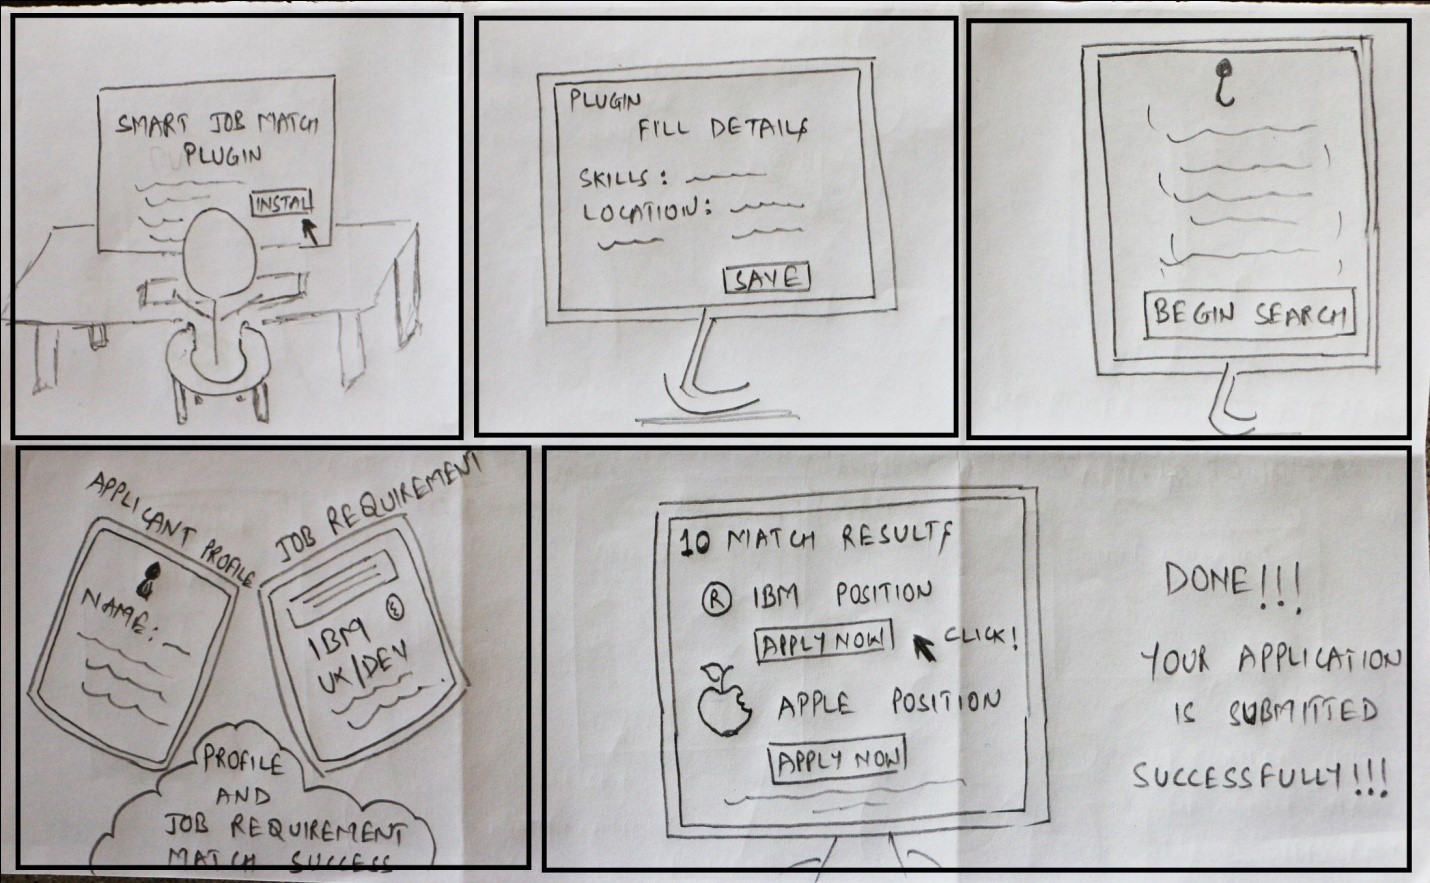 SMART JOB MATCH
PLUGIN
INSTAL
PLUGIN
FILL DETAILS
SKILLS:
LOCATION:
SAVE
BEGIN SEARCH
APPLICANT PROFILE
NAME:
JOB REQUIREMENT
IBM
UK/DEV
PROFILE
AND
JOB REQUIREMENT
MATCH SUCCESS
10 MATCH RESULTS
R IBM POSITION
APPLY NOW
CLICK!
APPLE POSITION
APPLY NOW
DONE!!!
YOUR APPLICATION
IS SUBMITTED
SUCCESSFULLY!!!